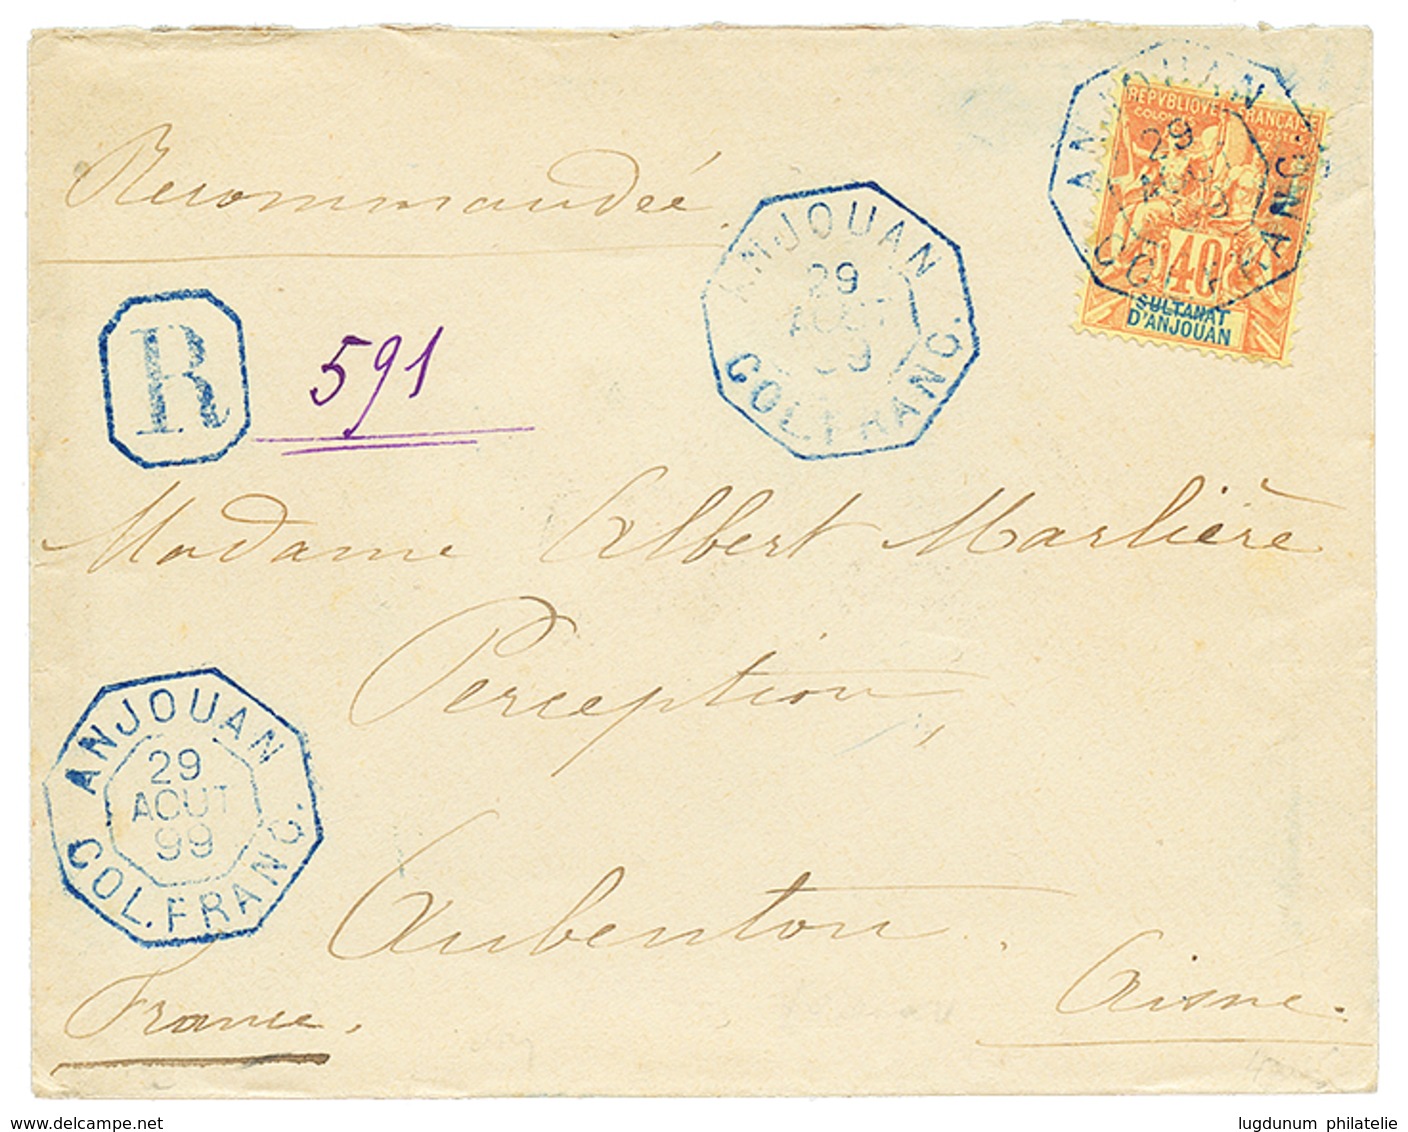 Recommandée.
R
591
ANJOUAN
29
AOUT
99
COL. FRANC.
ANJOUAN
29
COL. FRANC.
REPVBLIQVE FRANÇAISE
COLONIES POSTES
40
SULTANAT
D'ANJOUAN
Madame Albert Marlière
Perception
Aubenton.
Aisne.
France.
ANJOUAN
29
AOUT
99
COL. FRANC.
www.delcampe.net
lugdunum philatelie